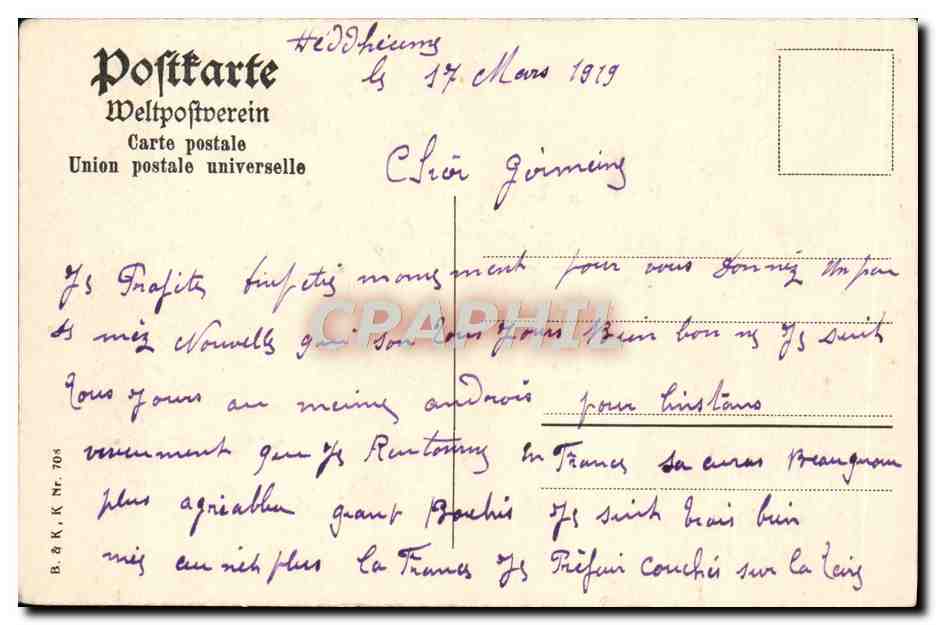 Postkarte
Weltpostverein
Carte postale
Union postale universelle
Héddheime
le 17 Mars 1919
Chèr Gérmeine
Je Profite dunpetie monement pour vous donnéz un peu
de méz Nouvelle qui son tous jours Bien bonne Je suit
tous jours au meime androis pour linstans
vivenment que Je Rentourne En France sa ceras Beauquou
plus agriable grant Bochis Je suit trais bien
mis ce nét plus la France Je Préfair couchés sur la taire
B. & K, K Nr. 708
CPAPHIL